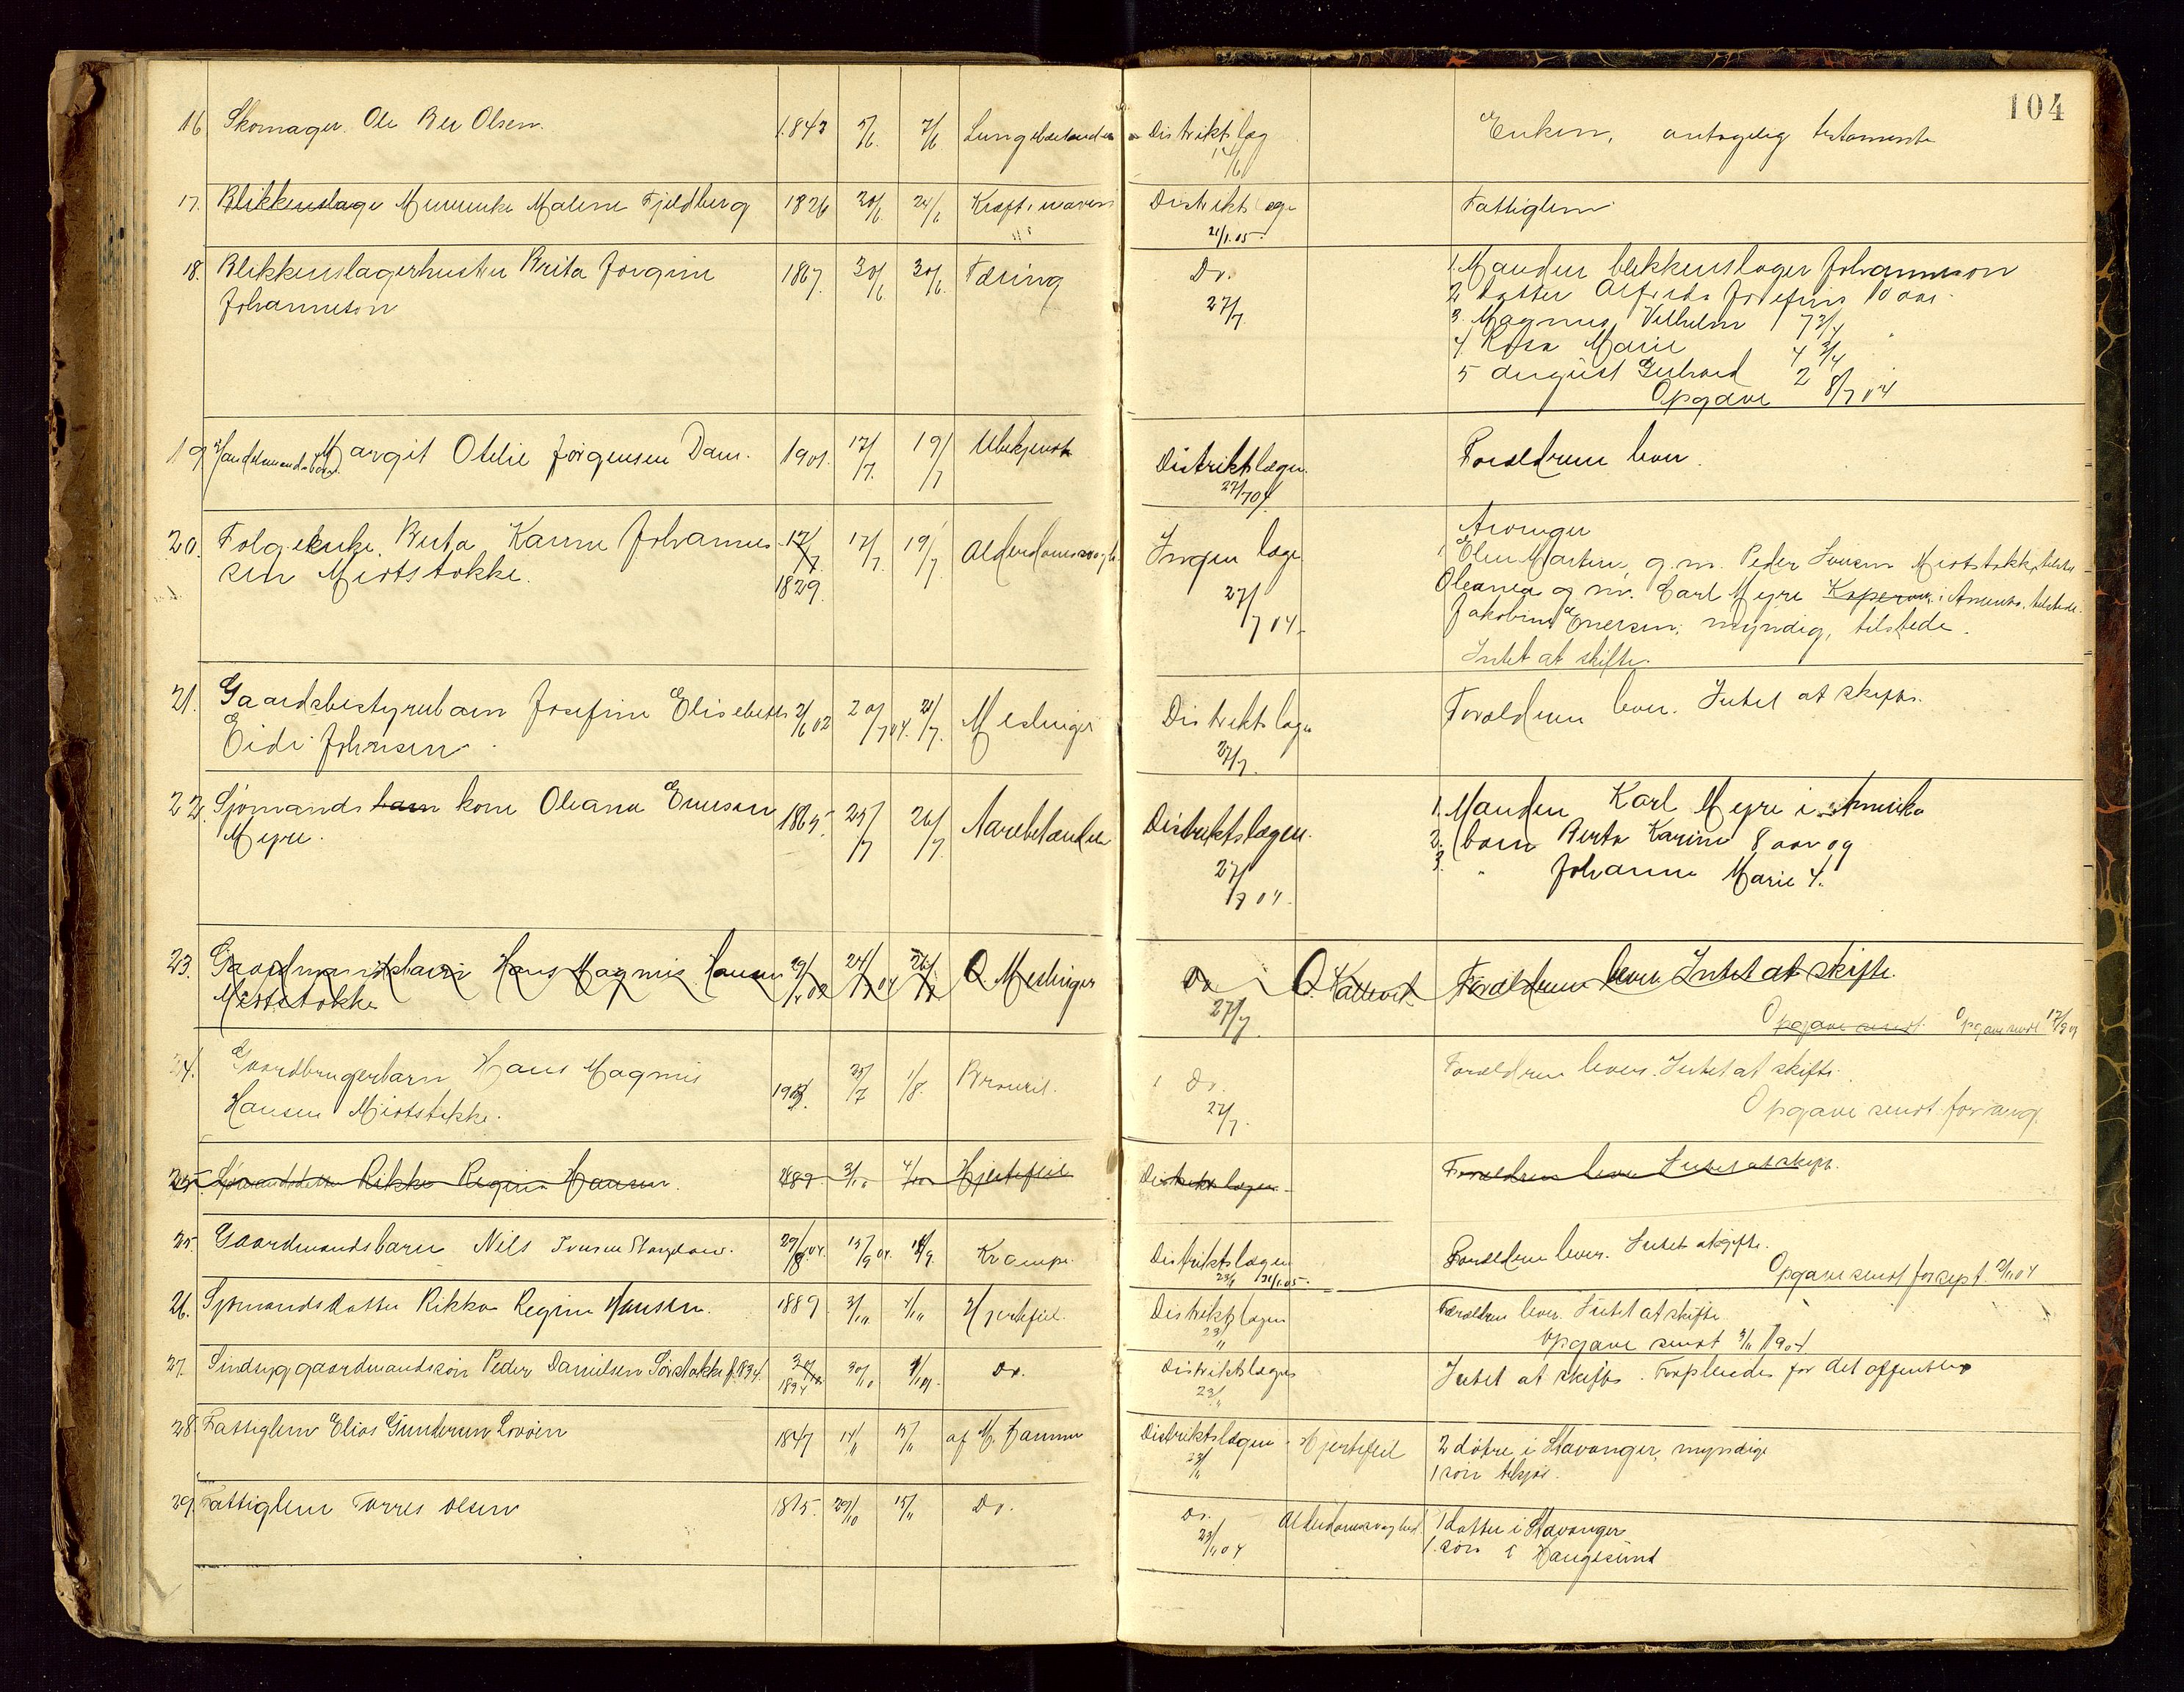 104
16 Skomager. Ole Ber Olsen. 1843 5/6. 7/6 Lungebetændelse Distriktslæg 14/6 Enken, antagelig testamente
17. Blikkenslage Malene Fjeldberg 1826 20/6. 24/6 Kræft i maven Distriktslæge 21/1.05. Fattiglem
18. Blikkenslagerhustru Brita Jorgine 1867. 30/6 30/6. Tæring Do. 27/7. 1. Manden blikkenslager Johanneson
Johanneson
2 datter Alfreda Josefine 10 aar.
3. Magnus Vilhelm 7 3/4 "
4. Rosa Marie 4 3/4
5 August Gerhard 2
Opgave 8/7 04
19 Handelsmandsbarn Margit Otelie Jørgensen Dam. 1901. 17/7. 19/7 Ubekjendt Distriktslægen. 27/7 04. Forældrene lever.
20. Folgeenke. Berta Karine Johannes- 17/7 17/7. 19/7. Alderdomssvaghe Ingen læge 27/7 04. Arvinger
sen Mestokke. 1829.
1 Elen Martine, g. m. Peder Iversen tilsted-
Oleanna g. m. Carl Myre i Amerika. tilstede.
Jakobine Enersen; myndig, tilstede.
Intet at skifte.
21. Gaardsbestyrerbarn Josefine Elisebeth 2/6 02 20/7 04. 21/7. Meslinger Distriktslagen 27/7. Forældrene lever. Intet at skifte.
Eide Johnsen.
22. Sjømands barn kone Oleana Enersen 1865. 25/7 26/7. Aarebetændelse Distriktslægen. 27/7 04. 1. Manden Karl Myre i Amerika
Myre.
2. barn Berta Karine 8 aar og
3. " Johanne Marie 4.
23. Gaardmandsbarn Hans Magnus Hansen 24/7 04 Meslinger Do 27/7. Forældrene lever. Intet at skifte.
Opgave sendt Opgave sendt
24. Gaardbrugerbarn Hans Magnus 25/7 1/8. Do. 27/7. Forældrene lever. Intet at skifte.
Hansen
Opgave sendt for aug.
25. Sjømandsdatter Rikka Regine Hansen. 1889 3/10 4/10 Hjertefeil Distriktslægen. Forældrene lever Intet at skifte.
25. Gaardmandsbarn Nils Iversen 29/8 04. 15/9 04. Krampe. Distriktslægen 23/11 21/1.05. Forældrene lever. Intet at skifte.
Opgave sendt for sept. 2/11 04
26. Sjømandsdatter Rikka Regine Hansen. 1889 3/10 4/10 Hjertefeil. Distriktslægen 23/11 Forældrene lever. Intet at skifte
Opgave sendt 3/11 1904
27. Sindssyg gaardmandssøn Peder Danielsen Sørstokke f. 1834. 1834 30/10 Do. Distriktslægen 23/11 Intet at skifte. Forpleiedes for det offentlige
28. Fattiglem Elias Gundersen 1847 14/11 15/11 af Distriktslægen 23/11 Hjertefeil 2 døtre i Stavanger, myndige
1 søn
29. Fattiglem Torres Olsen 1815. 29/10 15/11 Do. Do. 23/11 04 Alderdomssvaghed 1 datter i Stavanger
1. søn i Haugesund